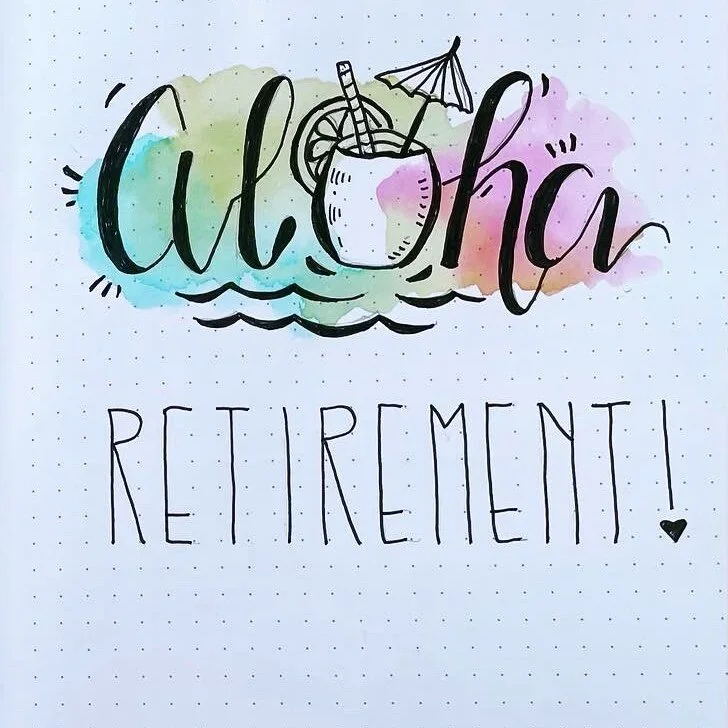 aloha
RETIREMENT!